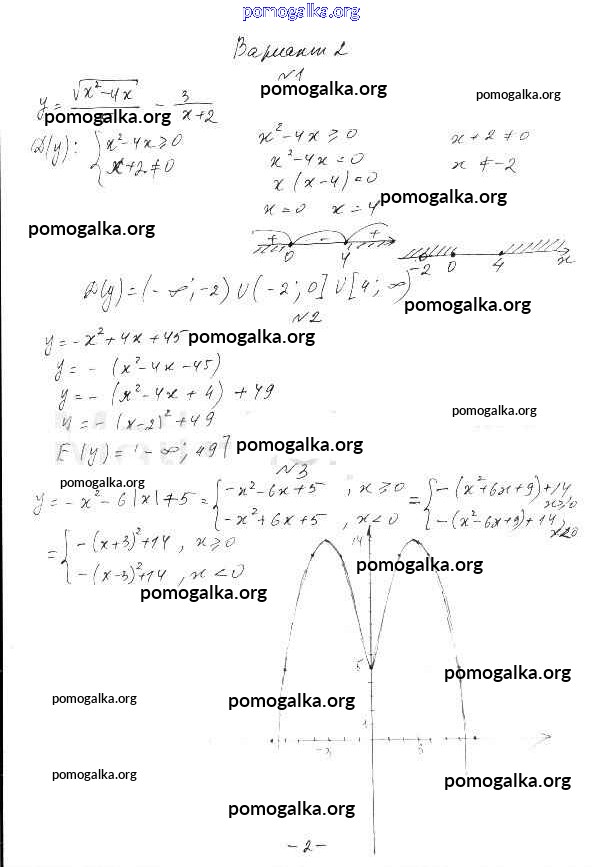 pomogalka.org
Вариант 2
№1
y = √(x²-4x) - 3/(x+2)
pomogalka.org pomogalka.org pomogalka.org
D(y): { x²-4x ≥ 0 x²-4x ≥ 0 x+2 ≠ 0
x+2 ≠ 0 x²-4x = 0 x ≠ -2
x(x-4) = 0
pomogalka.org
x = 0 x = 4
pomogalka.org
+ - +
0 4 -2 0 4 x
D(y) = (-∞; -2) ∪ (-2; 0] ∪ [4; ∞)
pomogalka.org
№2
y = -x² + 4x + 45
pomogalka.org
y = -(x²-4x-45)
y = -(x²-4x+4) + 49
y = -(x-2)² + 49
pomogalka.org
E(y) = (-∞; 49]
pomogalka.org
№3
pomogalka.org
y = -x² - 6|x| + 5 = { -x²-6x+5, x ≥ 0 = { -(x²+6x+9)+14 x ≥ 0
-x²+6x+5, x < 0 -(x²-6x+9)+14, x<0
= { -(x+3)²+14, x ≥ 0
-(x-3)²+14, x < 0
14
pomogalka.org
pomogalka.org
5
pomogalka.org
pomogalka.org pomogalka.org
1
-3
pomogalka.org pomogalka.org
pomogalka.org
- 2 -